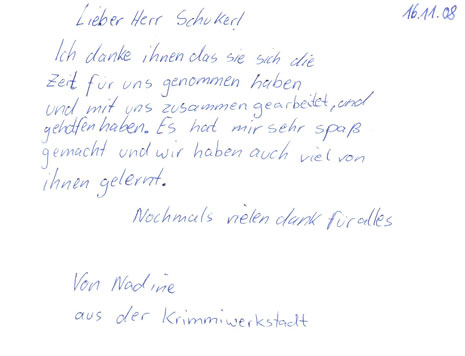 16.11.08
Lieber Herr Schuker!
Ich danke ihnen das sie sich die
Zeit für uns genommen haben
und mit uns zusammen gearbeitet, und
geholfen haben. Es hat mir sehr spaß
gemacht und wir haben auch viel von
ihnen gelernt.
Nochmals vielen dank für alles
Von Nadine
aus der Krimmiwerkstadt